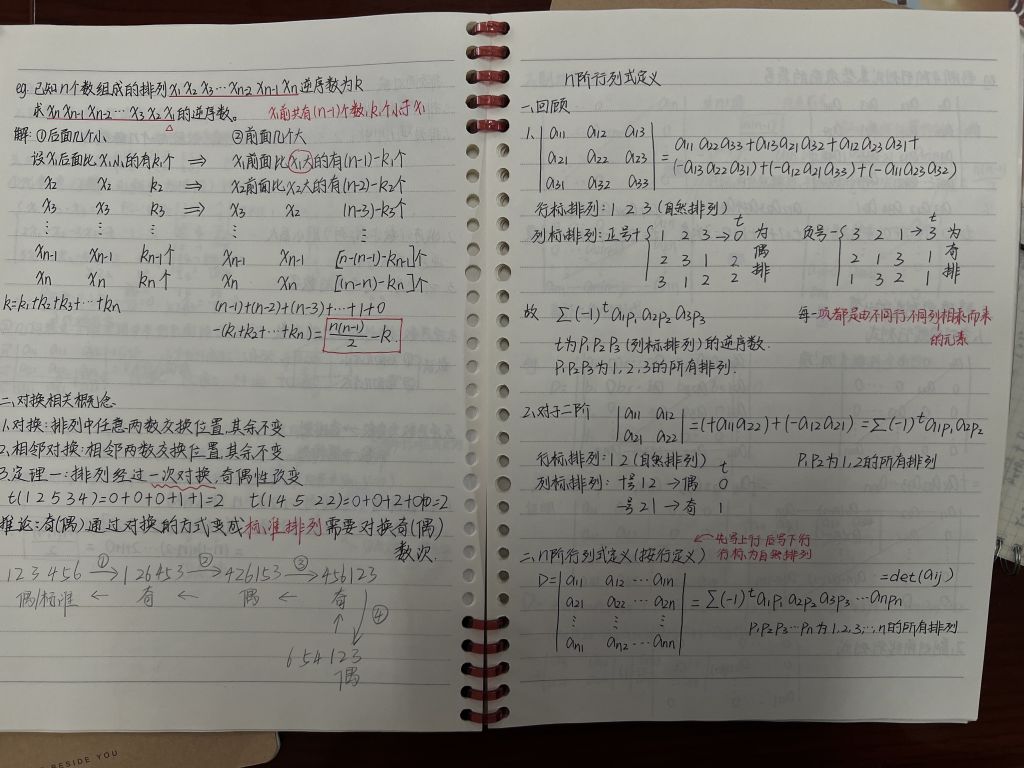 eg. 已知n个数组成的排列x₁x₂x₃…xn-2 xn-1 xn逆序数为k
求xn xn-1 xn-2…x₃x₂x₁的逆序数。 x₁前共有(n-1)个数,k₁个小于x₁
解 ①后面几个小 ②前面几个大
设x₁后面比x₁小的有k₁个 ⇒ x₁前面比x₁大的有(n-1)-k₁个
x₂ x₂ k₂ ⇒ x₂前面比x₂大的有(n-2)-k₂个
x₃ x₃ k₃ ⇒ x₃ x₂ (n-3)-k₃个
⋮ ⋮ ⋮ ⋮ ⋮ ⋮
xn-1 xn-1 kn-1个 xn-1 xn-1 [n-(n-1)-kn-1]个
xn xn kn个 xn xn [(n-n)-kn]个
k=k₁+k₂+k₃+…+kn (n-1)+(n-2)+(n-3)+…+1+0
-(k₁+k₂+…+kn)=n(n-1)/2-k.
二、对换相关概念
1.对换:排列中任意两数交换位置,其余不变
2.相邻对换:相邻两数交换位置,其余不变
3.定理一:排列经过一次对换,奇偶性改变
t(12534)=0+0+0+1+1=2 t(14522)=0+0+2+0=2
推论:奇(偶)通过对换的方式变成标准排列需要对换奇(偶)
数次.
123456 ①→ 126453 ②→ 426153 ③→ 456123
偶/标准 ← 奇 ← 偶 ← 奇
↑ ④
654123
偶
n阶行列式定义
一、回顾
1. | a11 a12 a13 | a11a22a33+a13a21a32+a12a23a31+
| a21 a22 a23 | =
| a31 a32 a33 | (-a13a22a31)+(-a12a21a33)+(-a11a23a32)
行标排列:1 2 3(自然排列)
列标排列:正号+{ 1 2 3→0 t 为 负号-{ 3 2 1→3 t 为
2 3 1 2 偶 2 1 3 1 奇
3 1 2 2 排 1 3 2 1 排
故 ∑(-1)ᵗa1p₁a2p₂a3p₃ 每一项都是由不同行不同列相乘而来
的元素
t为P₁P₂P₃(列标排列)的逆序数.
P₁P₂P₃为1,2,3的所有排列.
2.对于二阶 | a11 a12 |
| a21 a22 | =(+a11a22)+(-a12a21)=∑(-1)ᵗa1p₁a2p₂
行标排列:12(自然排列) t P₁P₂为1,2的所有排列
列标排列:+号12→偶 0
-号21→奇 1
先写上行后写下行
二、n阶行列式定义(按行定义) 行标为自然排列
D=| a11 a12…a1n | =det(aij)
| a21 a22…a2n | =∑(-1)ᵗa1p₁a2p₂a3p₃…anpn
| ⋮ ⋮ ⋮ | P₁P₂P₃…Pn为1,2,3,…,n的所有排列
| an1 an2…ann |
BESIDE YOU